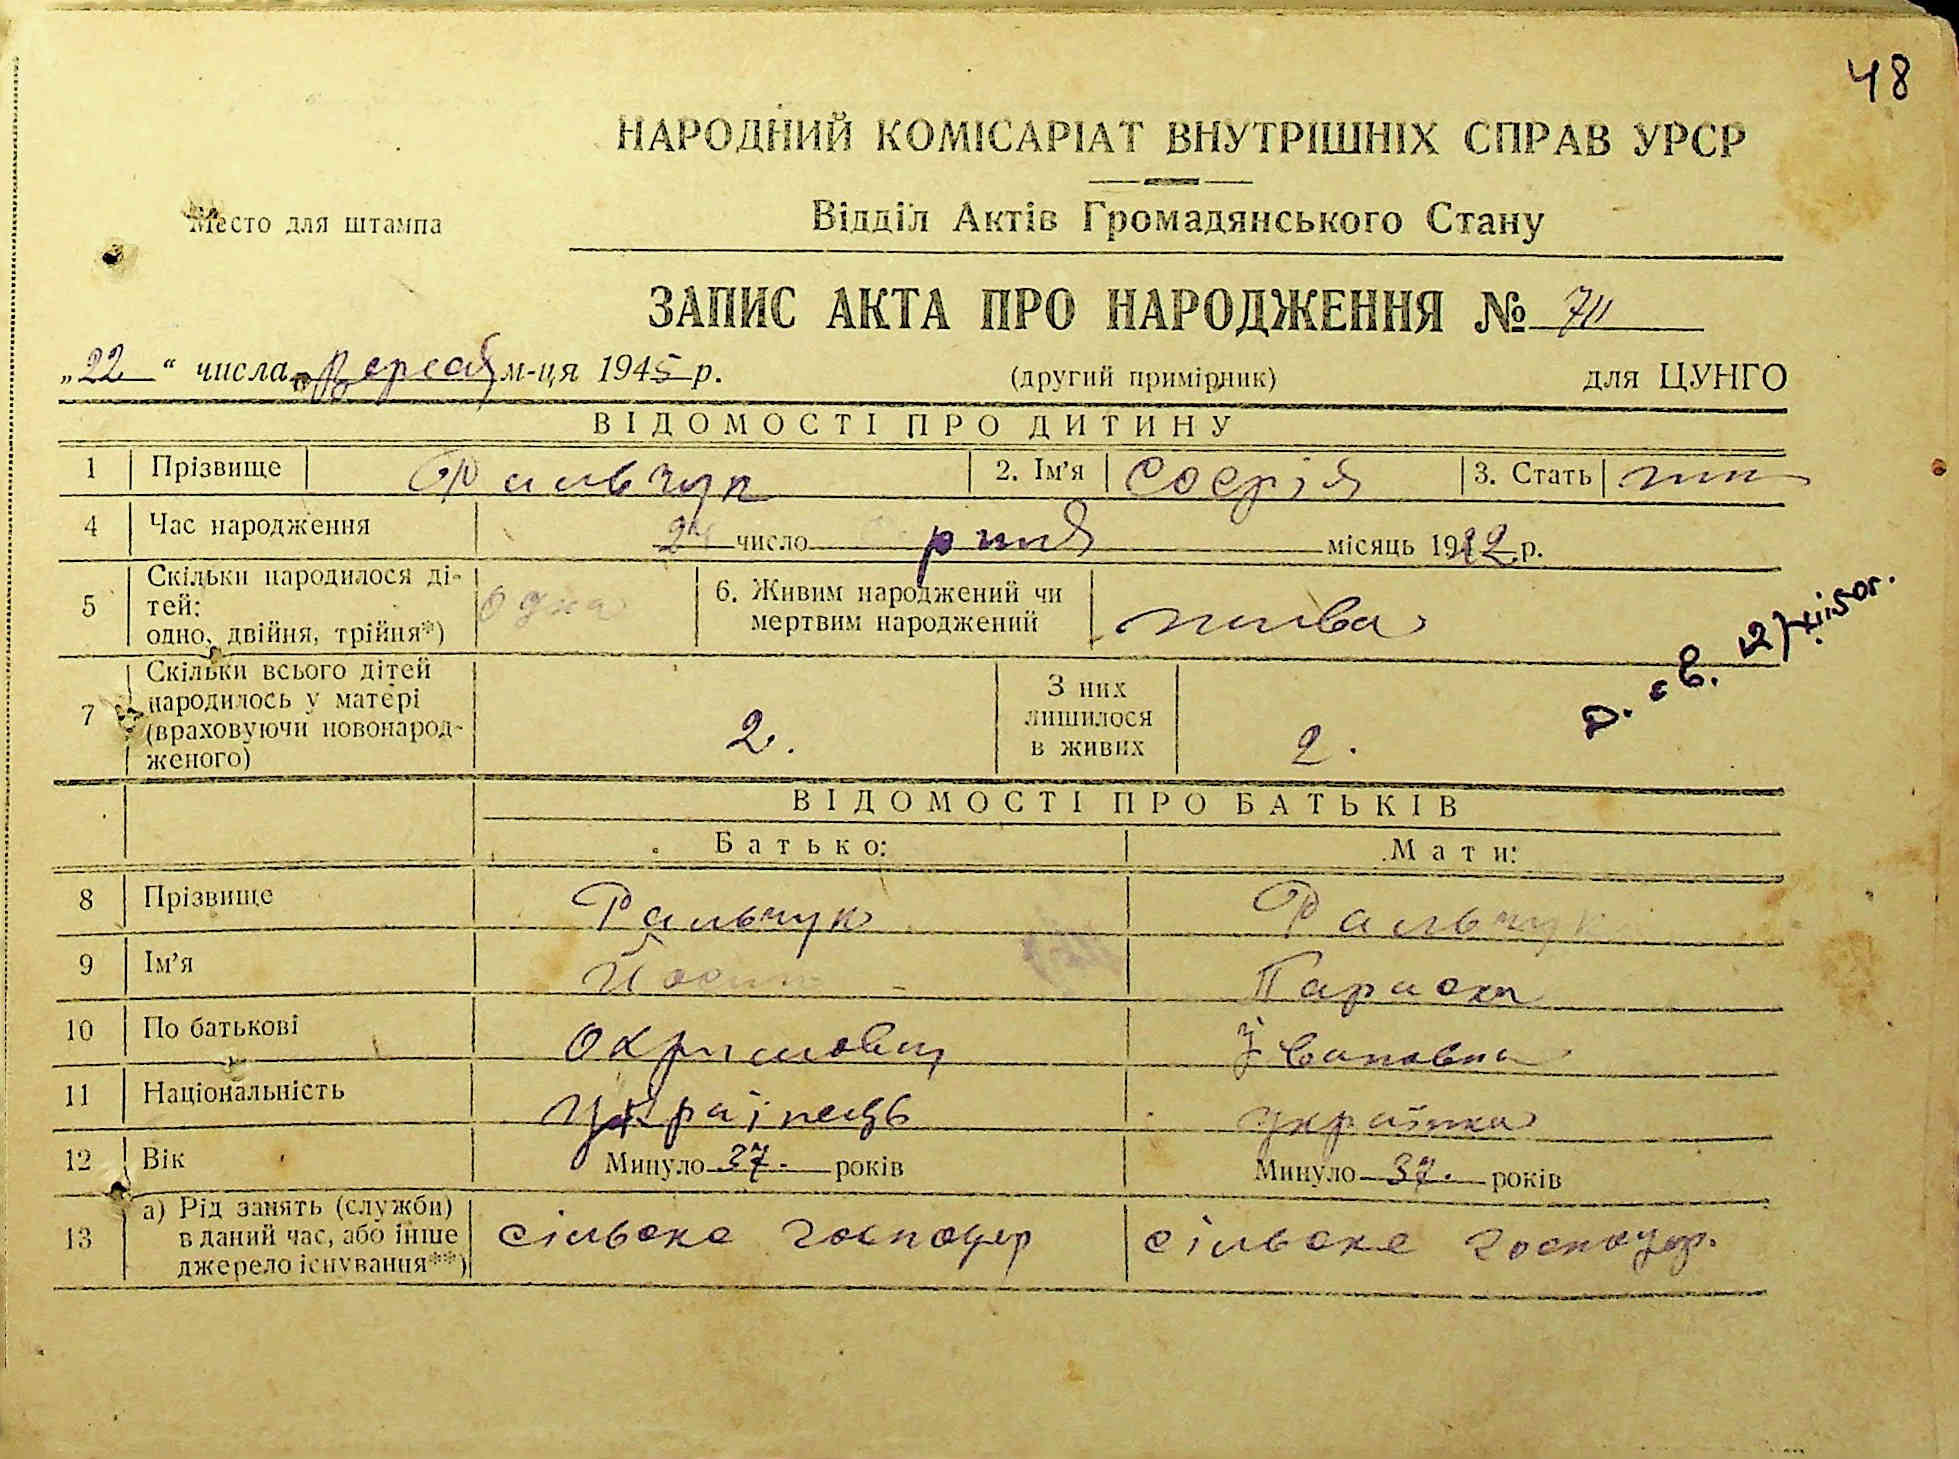 48
НАРОДНИЙ КОМІСАРІАТ ВНУТРІШНІХ СПРАВ УРСР
Место для штампа
Відділ Актів Громадянського Стану
ЗАПИС АКТА ПРО НАРОДЖЕННЯ №
„22“ числа м-ця 1945 р. (другий примірник) для ЦУНГО
ВІДОМОСТІ ПРО ДИТИНУ
1 Прізвище Фальчук 2. Ім’я Соєрія 3. Стать жін
4 Час народження число місяць 19 р.
5 Скільки народилося ді-
тей:
одно, двійня, трійня*) одна
6. Живим народжений чи
мертвим народжений жива
7 Скільки всього дітей
народилось у матері
(враховуючи новонарод-
женого) 2.
З них
лишилося
в живих 2.
ВІДОМОСТІ ПРО БАТЬКІВ
Батько: Мати:
8 Прізвище Фальчук Фальчук
9 Ім’я Йосип Параска
10 По батькові Іванівна
11 Національність Українець українка
12 Вік Минуло 37. років Минуло 37. років
13 а) Рід занять (служби)
в даний час, або інше
джерело існування**)
сільське господар сільське господар.